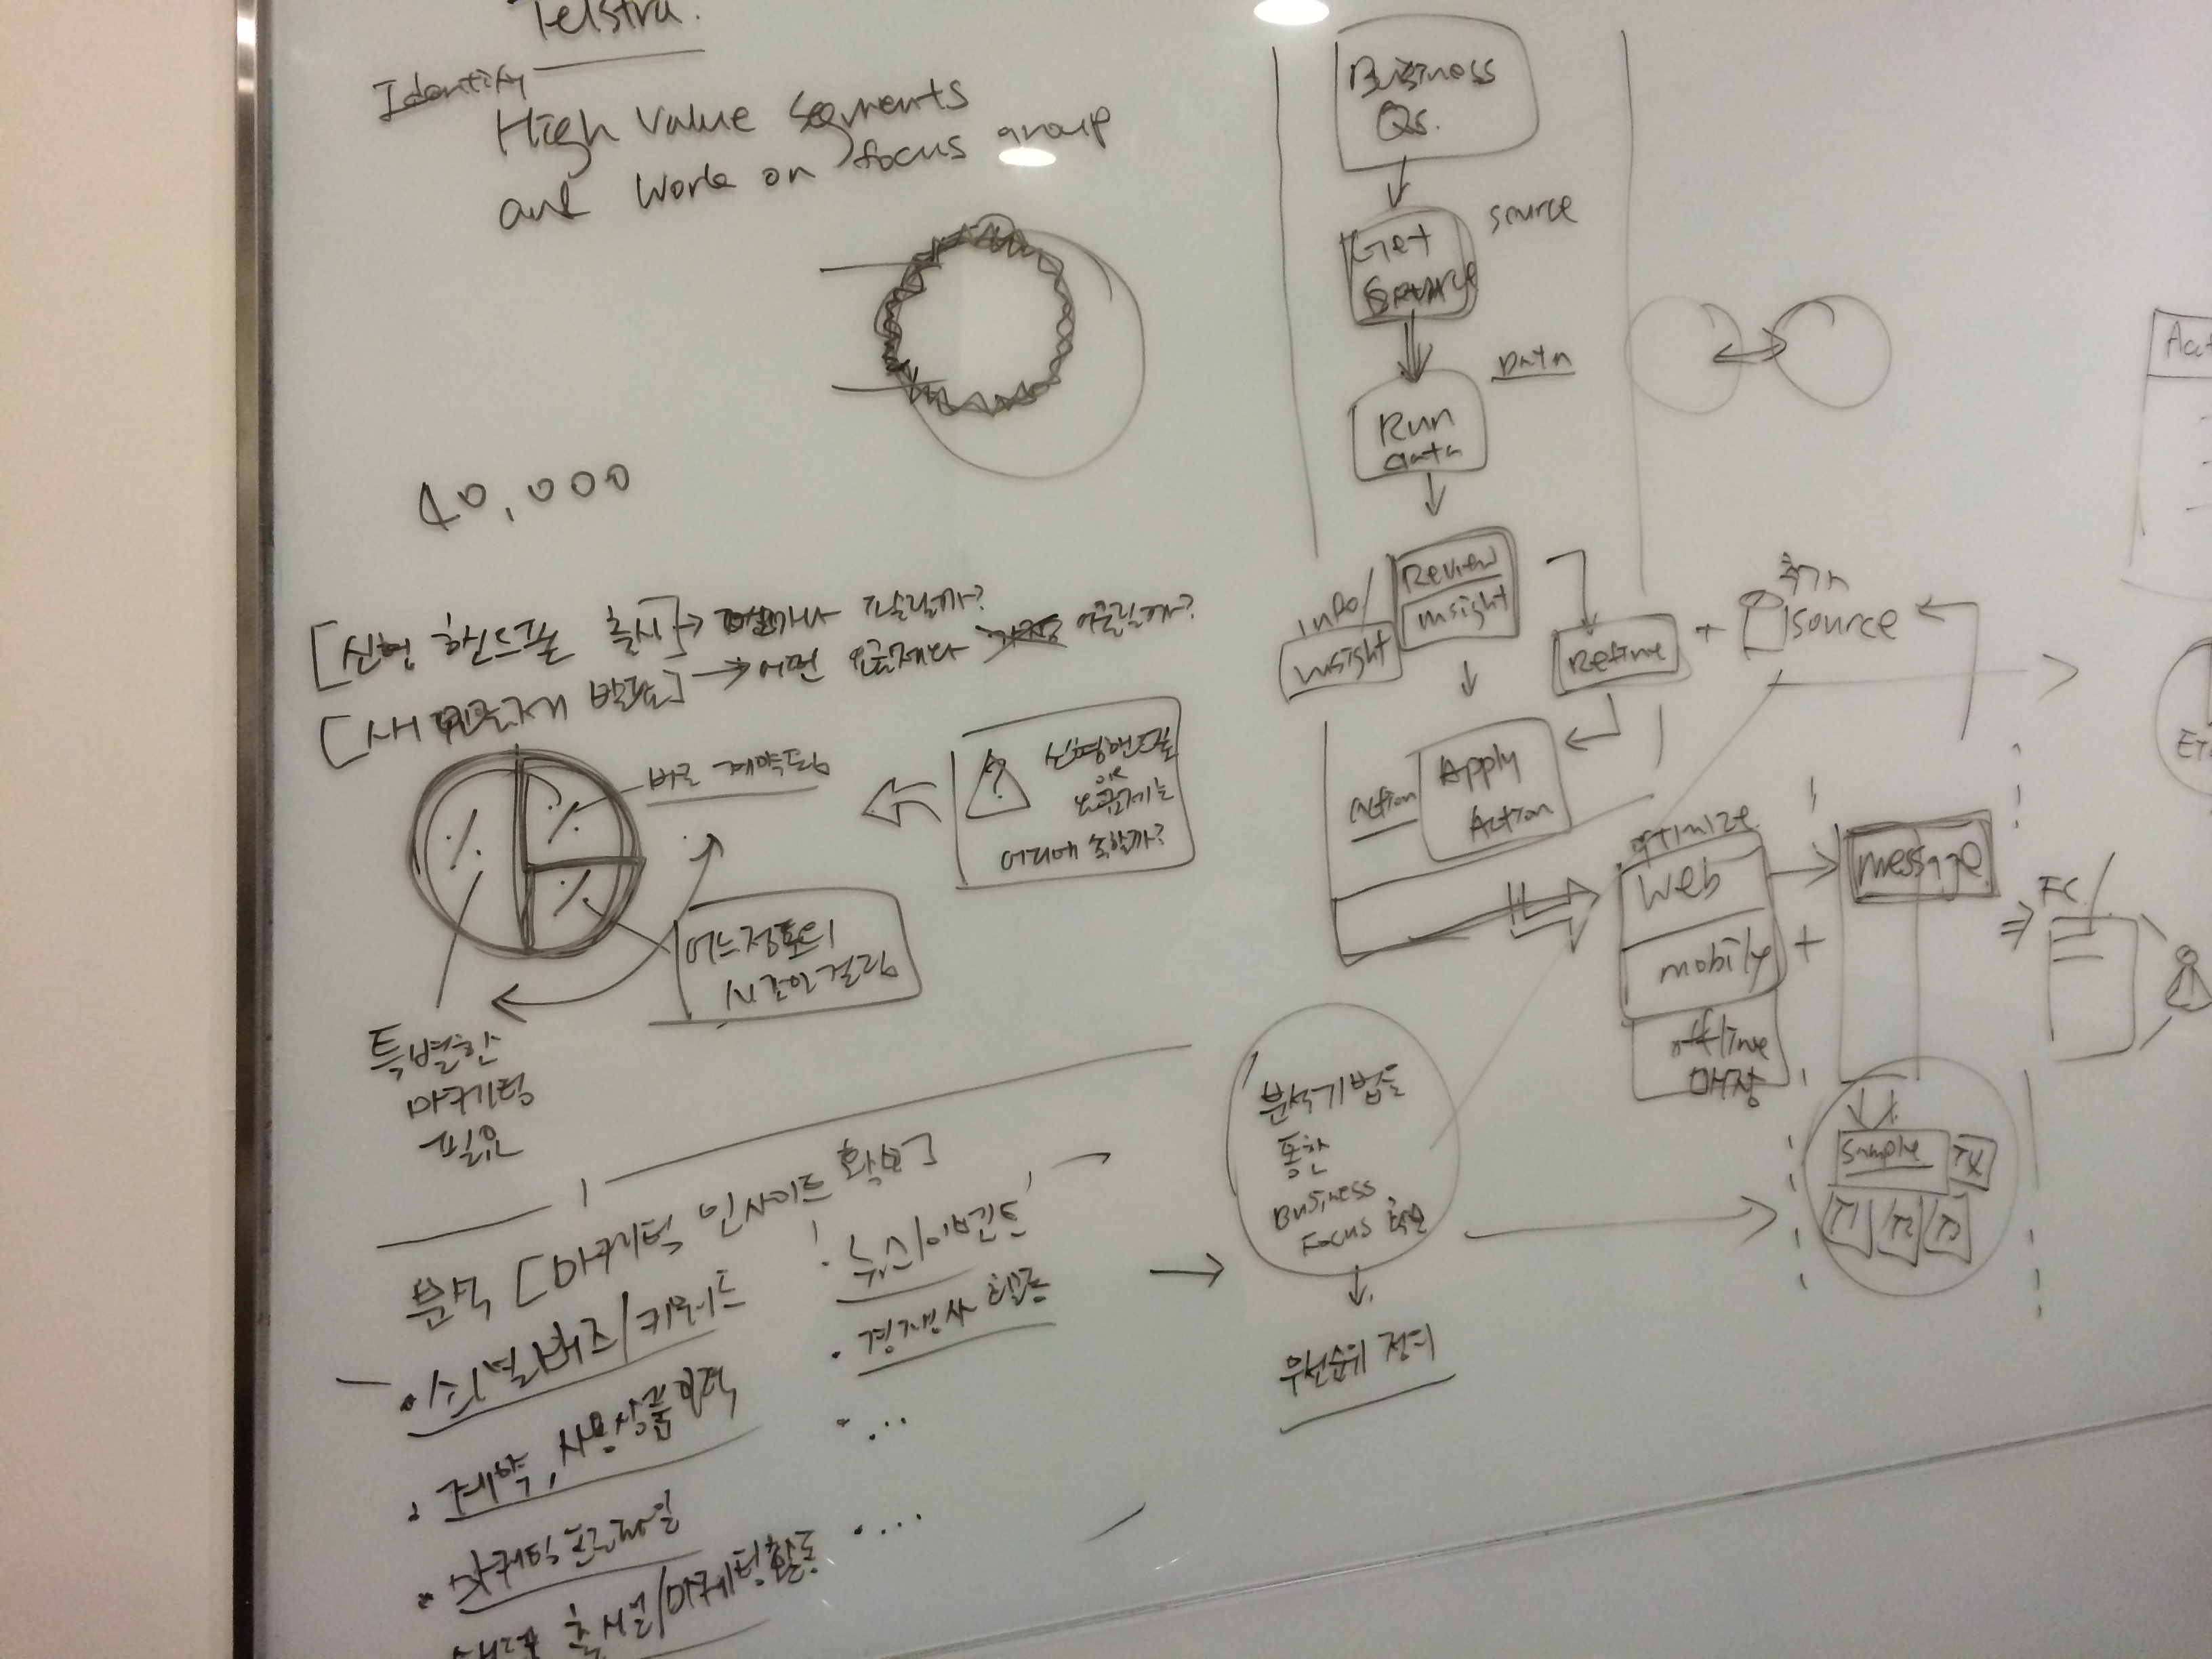 Telstra.
Identify
High value segments
and work on focus group
40,000
[신형 핸드폰 출시] → 얼마나 잘 팔릴까?
[새 요금제 발표] → 어떤 요금제가 어울릴까?
바로 계약됨
?
신형핸드폰
OR
요금제는
어디에 속할까?
%
%
%
어느정도의
시간이 걸림
특별한
마케팅
필요
분석 [마케팅 인사이트 확보]
· 소셜버즈/키워드
· 계약, 사용상품 이력
· 마케팅 프로파일
출시일/마케팅활동
· 뉴스/이벤트
· 경쟁사 활동
· ...
· ....
Business
Qs.
Get
Source
source
Data
Run
data
Review
insight
Info/
insight
Refine
+
추가
source
Apply
Action
action
optimize
web
mobily
offline
매장
+
message
FC
Sample
TX
T1
T2
T3
분석기법을
통한
Business
Focus 확보
우선순위 정의